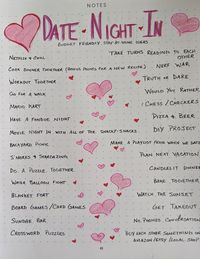 NOTES
DATE · NIGHT · IN
BUDGET FRIENDLY STAY-AT-HOME IDEAS
NETFLIX & CHILL
COOK DINNER TOGETHER (BONUS POINTS FOR A NEW RECIPE)
WORKOUT TOGETHER
GO FOR A WALK
MARIO KART
HAVE A FONDUE NIGHT
MOVIE NIGHT WITH ALL OF THE SNACKY-SNACKS
BACKYARD PICNIC
S'MORES & STARGAZING
DO A PUZZLE TOGETHER
WATER BALLOON FIGHT
BLANKET FORT
BOARD GAMES/CARD GAMES
SUNDAE BAR
CROSSWORD PUZZLES
TAKE TURNS READING TO EACH OTHER
NERF WAR
TRUTH OR DARE
WOULD YOU RATHER
CHESS/CHECKERS
PIZZA & BEER
DIY PROJECT
MAKE A PLAYLIST FROM WHEN WE DATED
PLAN NEXT VACATION
CANDLELIT DINNER
BAKE TOGETHER
WATCH THE SUNSET
GET TAKEOUT
NO PHONES CONVERSATION
BUY EACH OTHER SOMETHING ON
AMAZON/ETSY/LOCAL SHOP